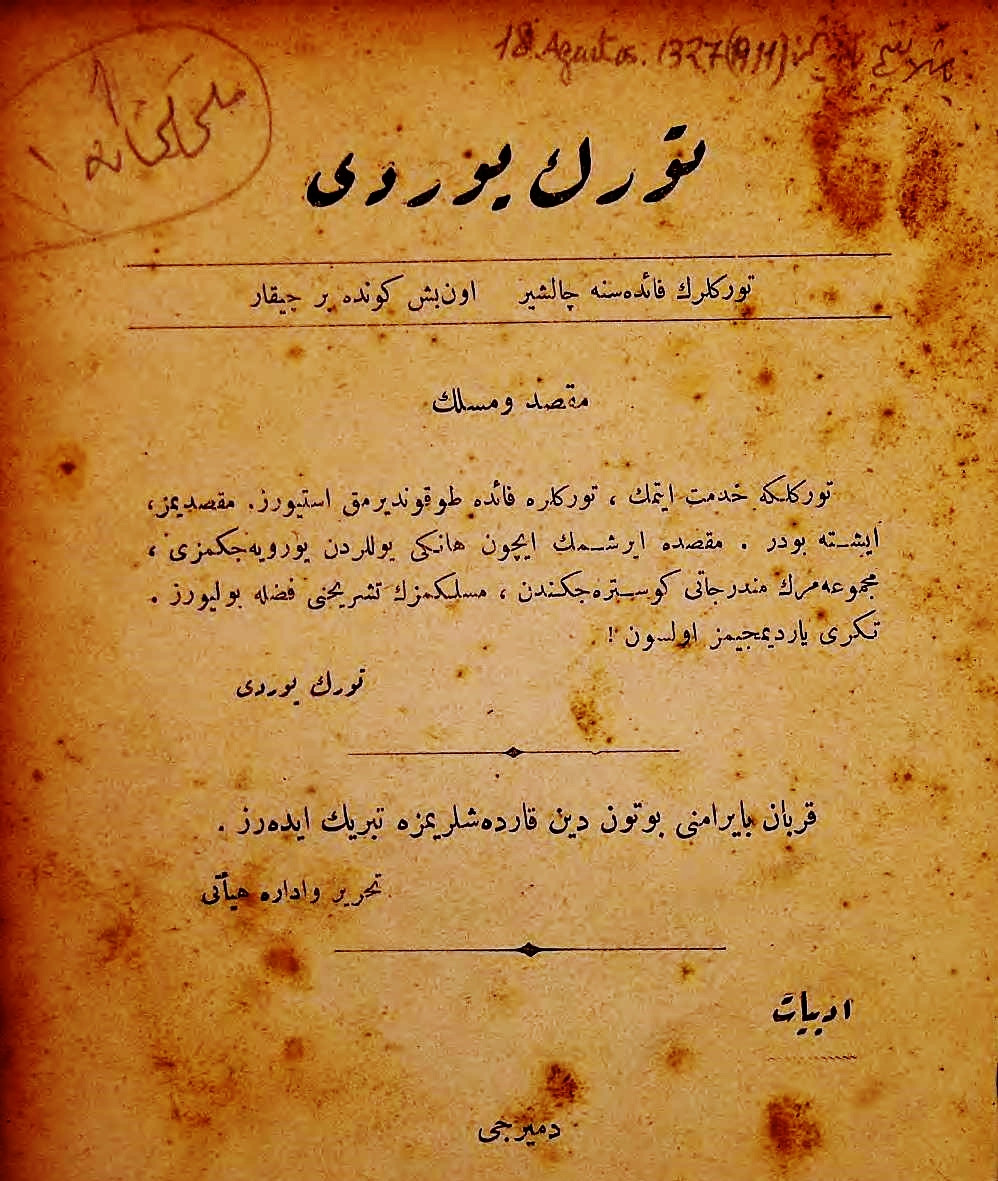 18 Agustos. 1327 (911)
تورك يوردى
توركلرك فائده‌سنه چالشير اون‌بش كونده بر چيقار
مقصد و مسلك
توركلكه خدمت ايتمك ، توركلره فائده طوقونديرمق استيورز. مقصديمز،
ايشته بودر . مقصده ايرشمك ايچون هانكى يوللردن يورويه‌جكمزى ،
مجموعه‌مزك مندرجاتى كوستره‌جكندن ، مسلكمزك تشريحنى فضله بوليورز .
تكرى يارديمجيمز اولسون !
تورك يوردى
قربان بايرامنى بوتون دين قارده‌شلريمزه تبريك ايده‌رز .
تحرير و اداره هيأتى
ادبيات
دميرجى